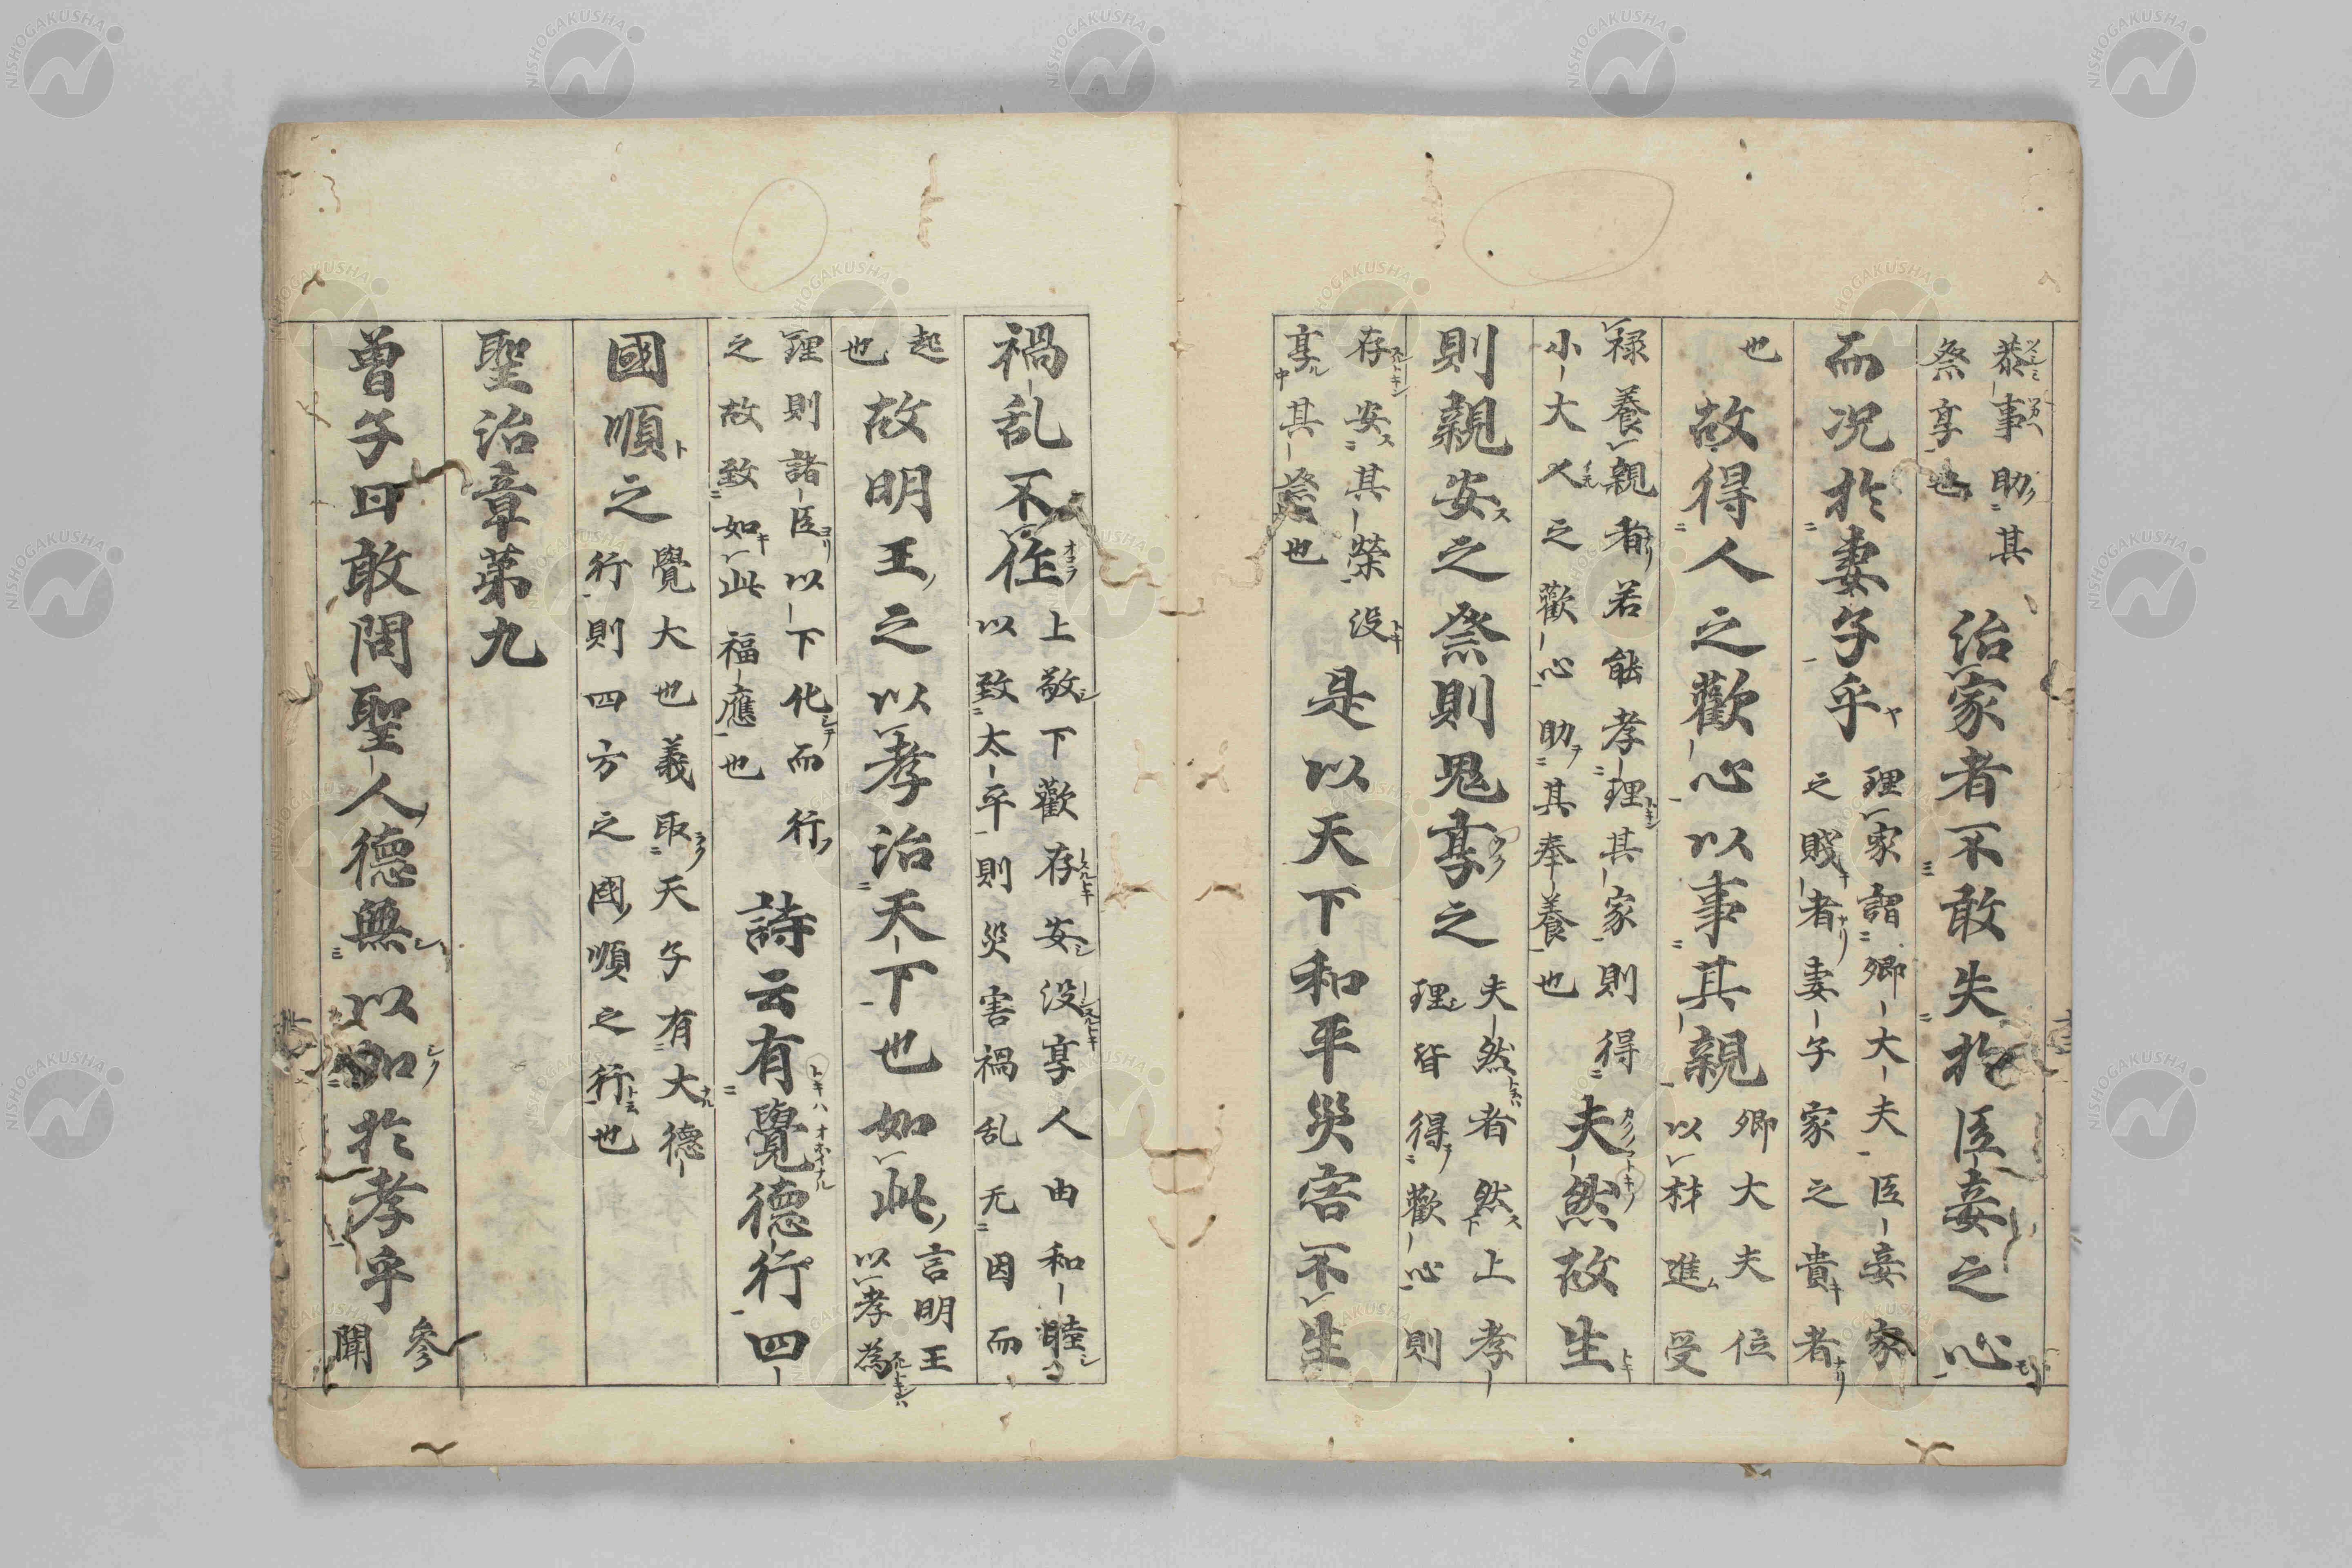 恭事助其
祭享也
治家者不敢失於臣妾之心
而況於妻子乎
理家謂卿大夫臣妾家
之賤者妻子家之貴者
也
故得人之歡心以事其親
卿大夫位
以材進受
禄養親者若能孝理其家則得
小大人之歡心助其奉養也
夫然故生
則親安之祭則鬼享之
夫然者然上孝
理皆得歡心則
存安其榮没
享其祭也
是以天下和平災害不生
禍乱不作
上敬下歡存安没享人由和睦
以致太平則災害禍乱无因而
起
也
故明王之以孝治天下也如此
言明王
以孝為
理則諸臣以下化而行
之故致如此福應也
詩云有覺德行四
國順之
覺大也義取天子有大德
行則四方之國順之行也
聖治章第九
曽子曰敢問聖人德無以加於孝乎
參
聞